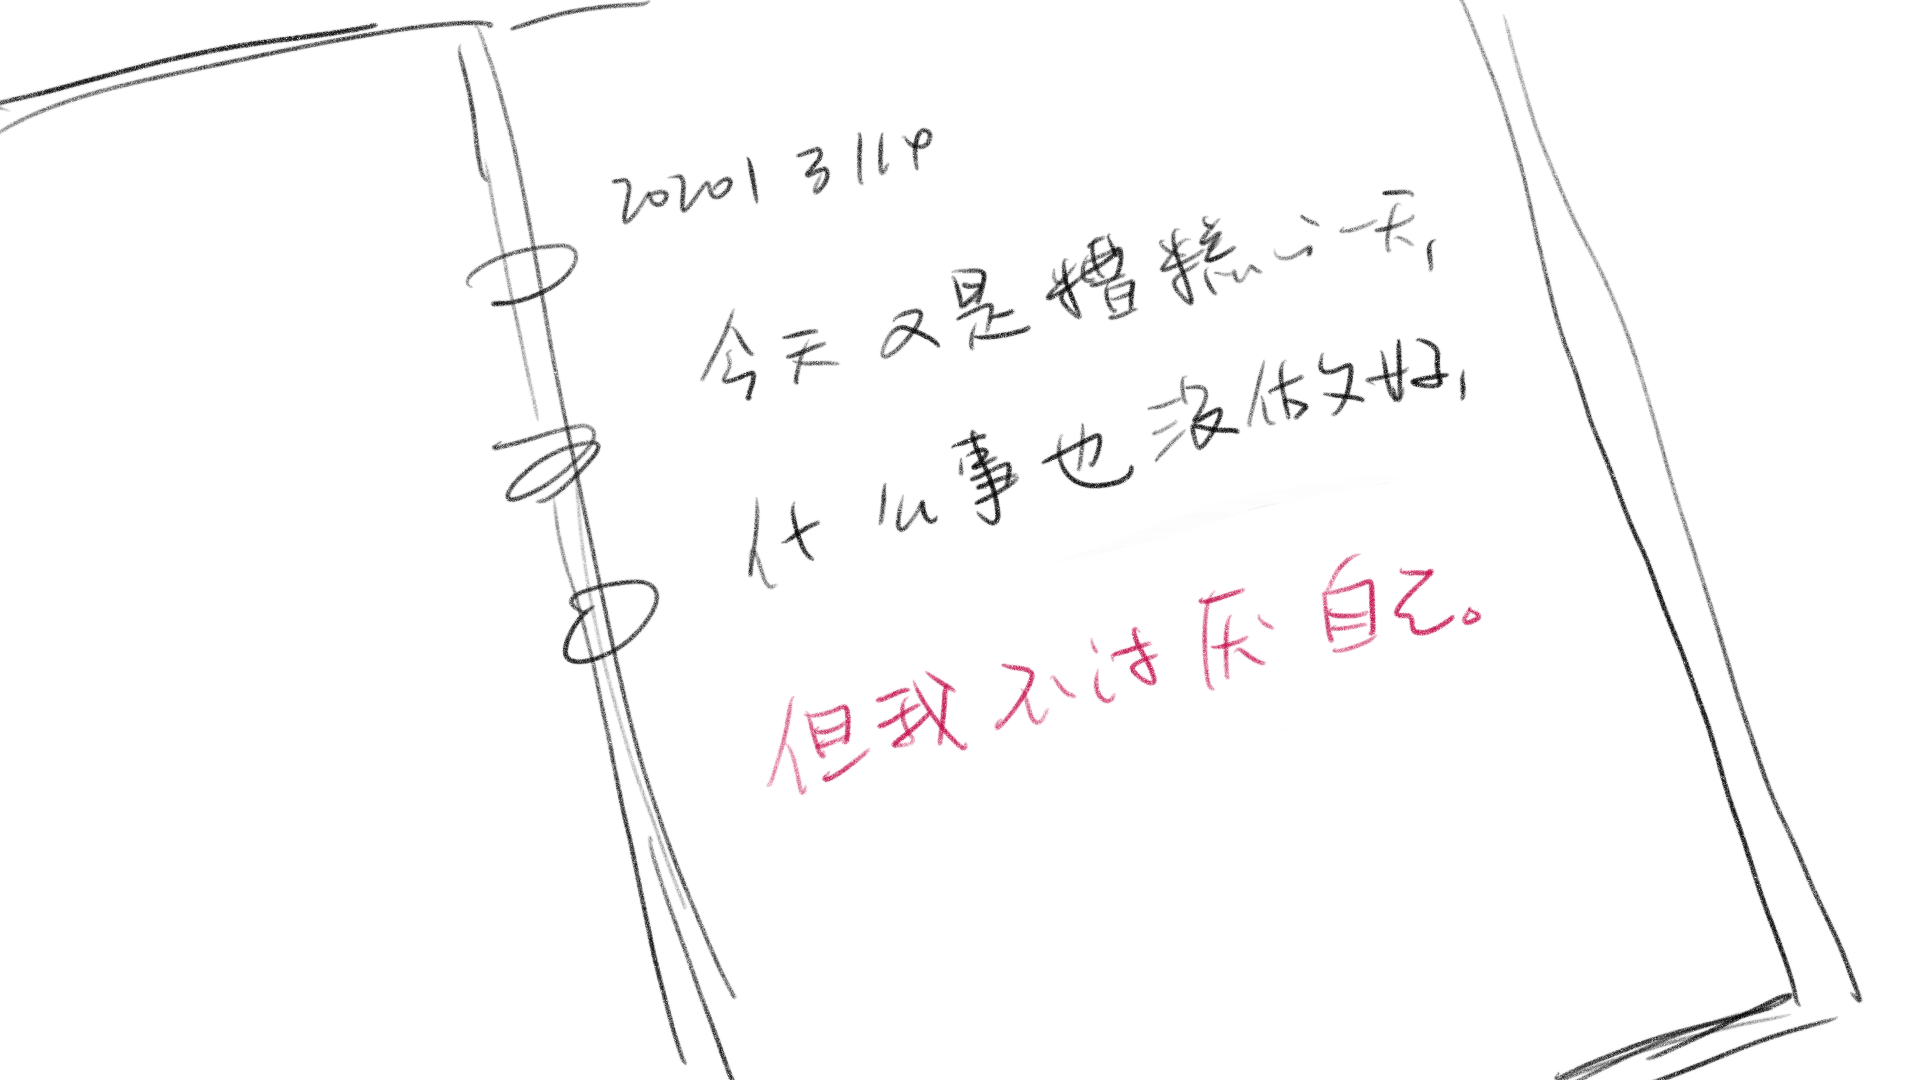 2020 1 3 11 9
今天又是糟糕的一天,
什么事也没做好,
但我不讨厌自己。